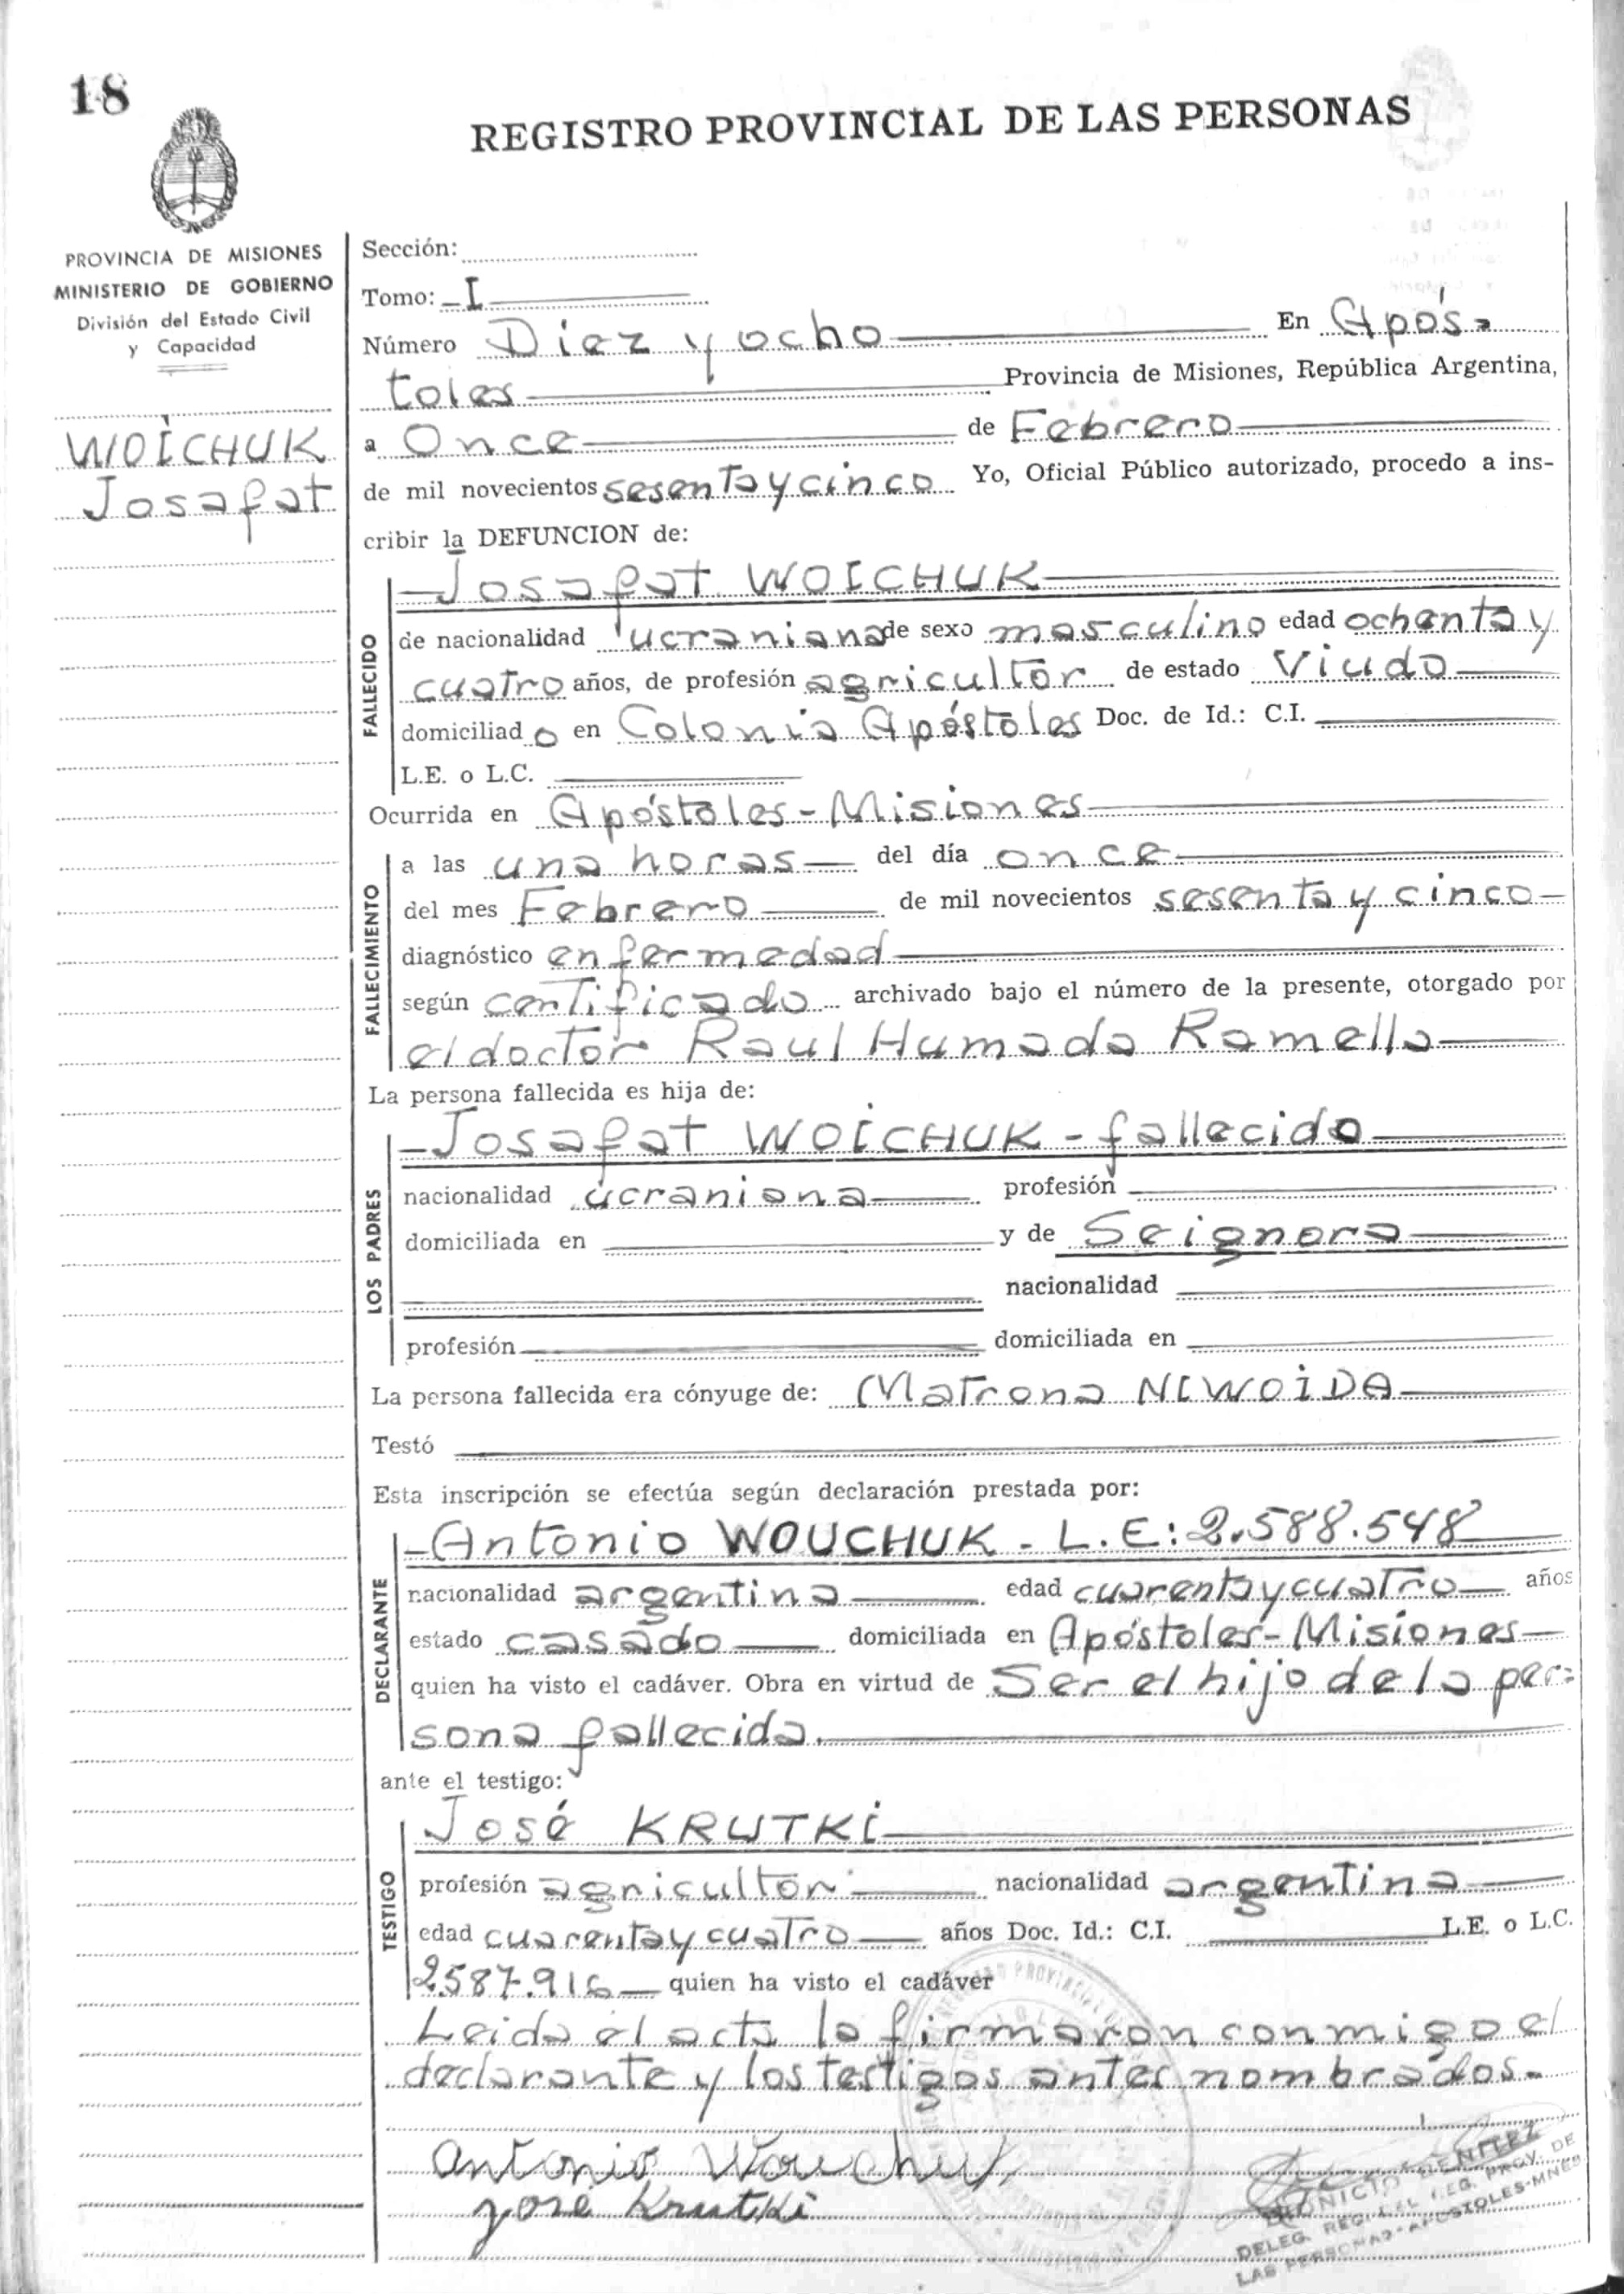 18
REGISTRO PROVINCIAL DE LAS PERSONAS
PROVINCIA DE MISIONES
MINISTERIO DE GOBIERNO
División del Estado Civil
y Capacidad
WOICHUK
Josafat
Sección:
Tomo: I
Número Diez y ocho En Após-
toles Provincia de Misiones, República Argentina,
a Once de Febrero
de mil novecientos sesenta y cinco Yo, Oficial Público autorizado, procedo a ins-
cribir la DEFUNCION de:
FALLECIDO
Josafat WOICHUK
de nacionalidad ucraniana de sexo masculino edad ochenta y
cuatro años, de profesión agricultor de estado Viudo
domiciliado en Colonia Apóstoles Doc. de Id.: C.I.
L.E. o L.C.
Ocurrida en Apóstoles - Misiones
FALLECIMIENTO
a las una horas del día once
del mes Febrero de mil novecientos sesenta y cinco
diagnóstico enfermedad
según certificado archivado bajo el número de la presente, otorgado por
el doctor Raul Humada Ramella
La persona fallecida es hija de:
LOS PADRES
Josafat WOICHUK - fallecido
nacionalidad ucraniana profesión
domiciliada en y de Seignora
nacionalidad
profesión domiciliada en
La persona fallecida era cónyuge de: Matrona NEWOIDA
Testó
Esta inscripción se efectúa según declaración prestada por:
DECLARANTE
Antonio WOUCHUK - L.E: 2.588.548
nacionalidad argentina edad cuarenta y cuatro años
estado casado domiciliada en Apóstoles - Misiones
quien ha visto el cadáver. Obra en virtud de Ser el hijo de la per-
sona fallecida.
ante el testigo:
TESTIGO
José KRUTKI
profesión agricultor nacionalidad argentina
edad cuarenta y cuatro años Doc. Id.: C.I. L.E. o L.C.
2587.916 quien ha visto el cadáver
Leida el acta la firmaron conmigo el
declarante y los testigos antes nombrados.
Antonio Wouchuk
José Krutki
DIONICIO BENITEZ
DELEG. REGIONAL REG. PROV. DE
LAS PERSONAS - APOSTOLES-MNES